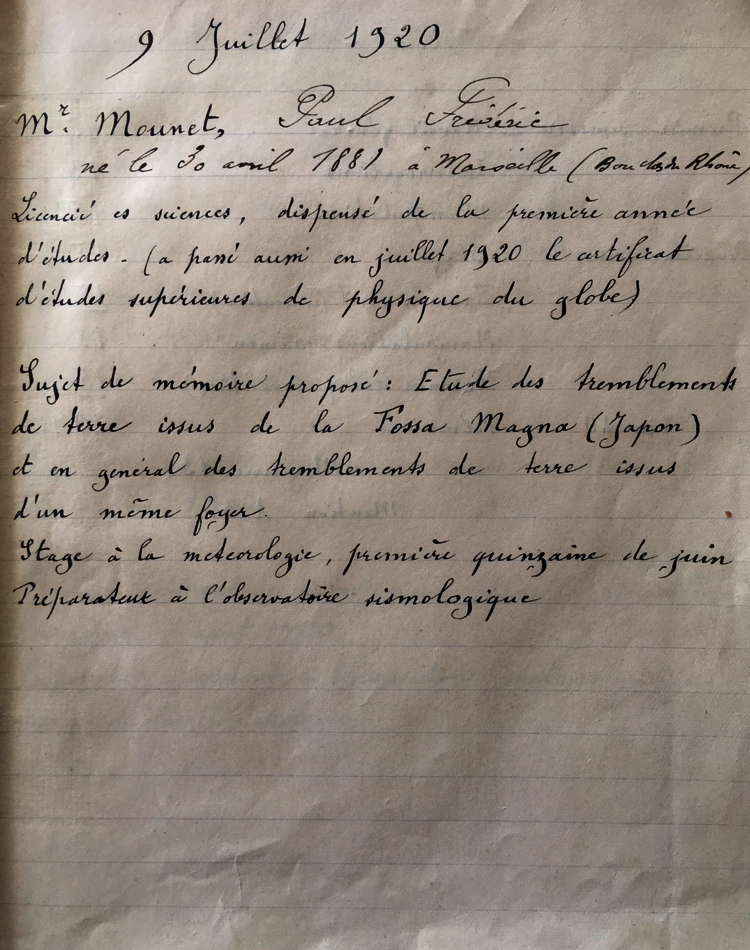 9 Juillet 1920
Mr. Mounet, Paul Frédéric
né le 30 avril 1881 à Marseille (Bouches du Rhône)
Licencié es sciences, dispensé de la première année
d'études. (a passé aussi en juillet 1920 le certificat
d'études supérieures de physique du globe)
Sujet de mémoire proposé : Etude des tremblements
de terre issus de la Fossa Magna (Japon)
et en général des tremblements de terre issus
d'un même foyer.
Stage à la meteorologie, première quinzaine de juin
Préparateur à l'observatoire sismologique